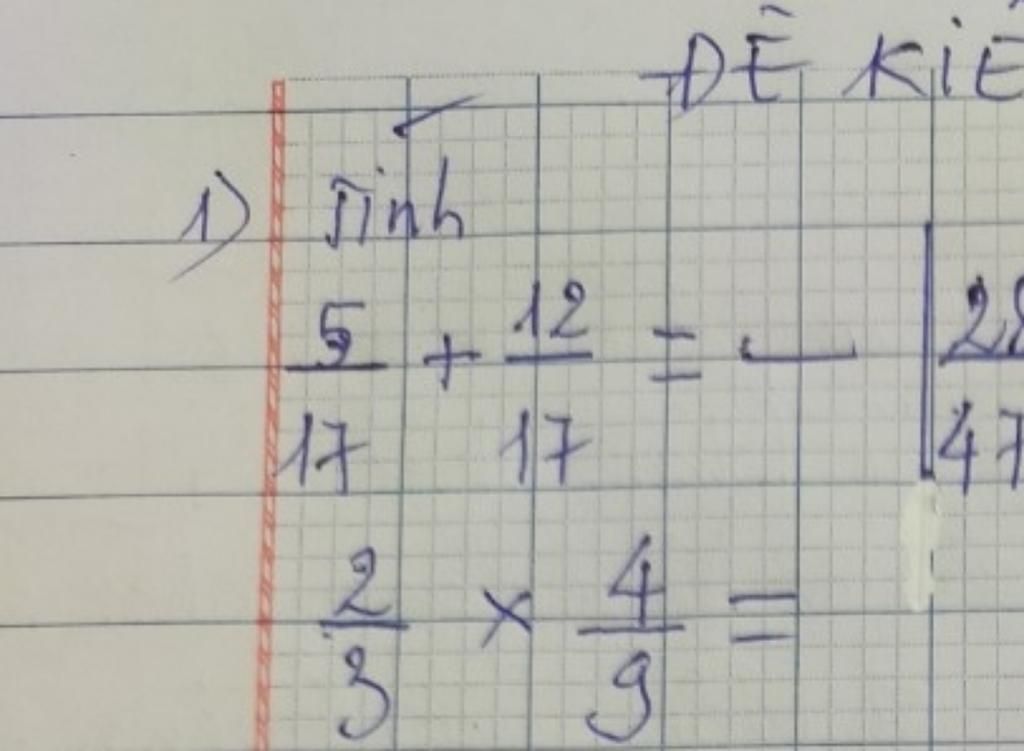 ĐỀ KIỂ
1) Tính
5/17 + 12/17 = — | 28/47
2/3 × 4/9 =